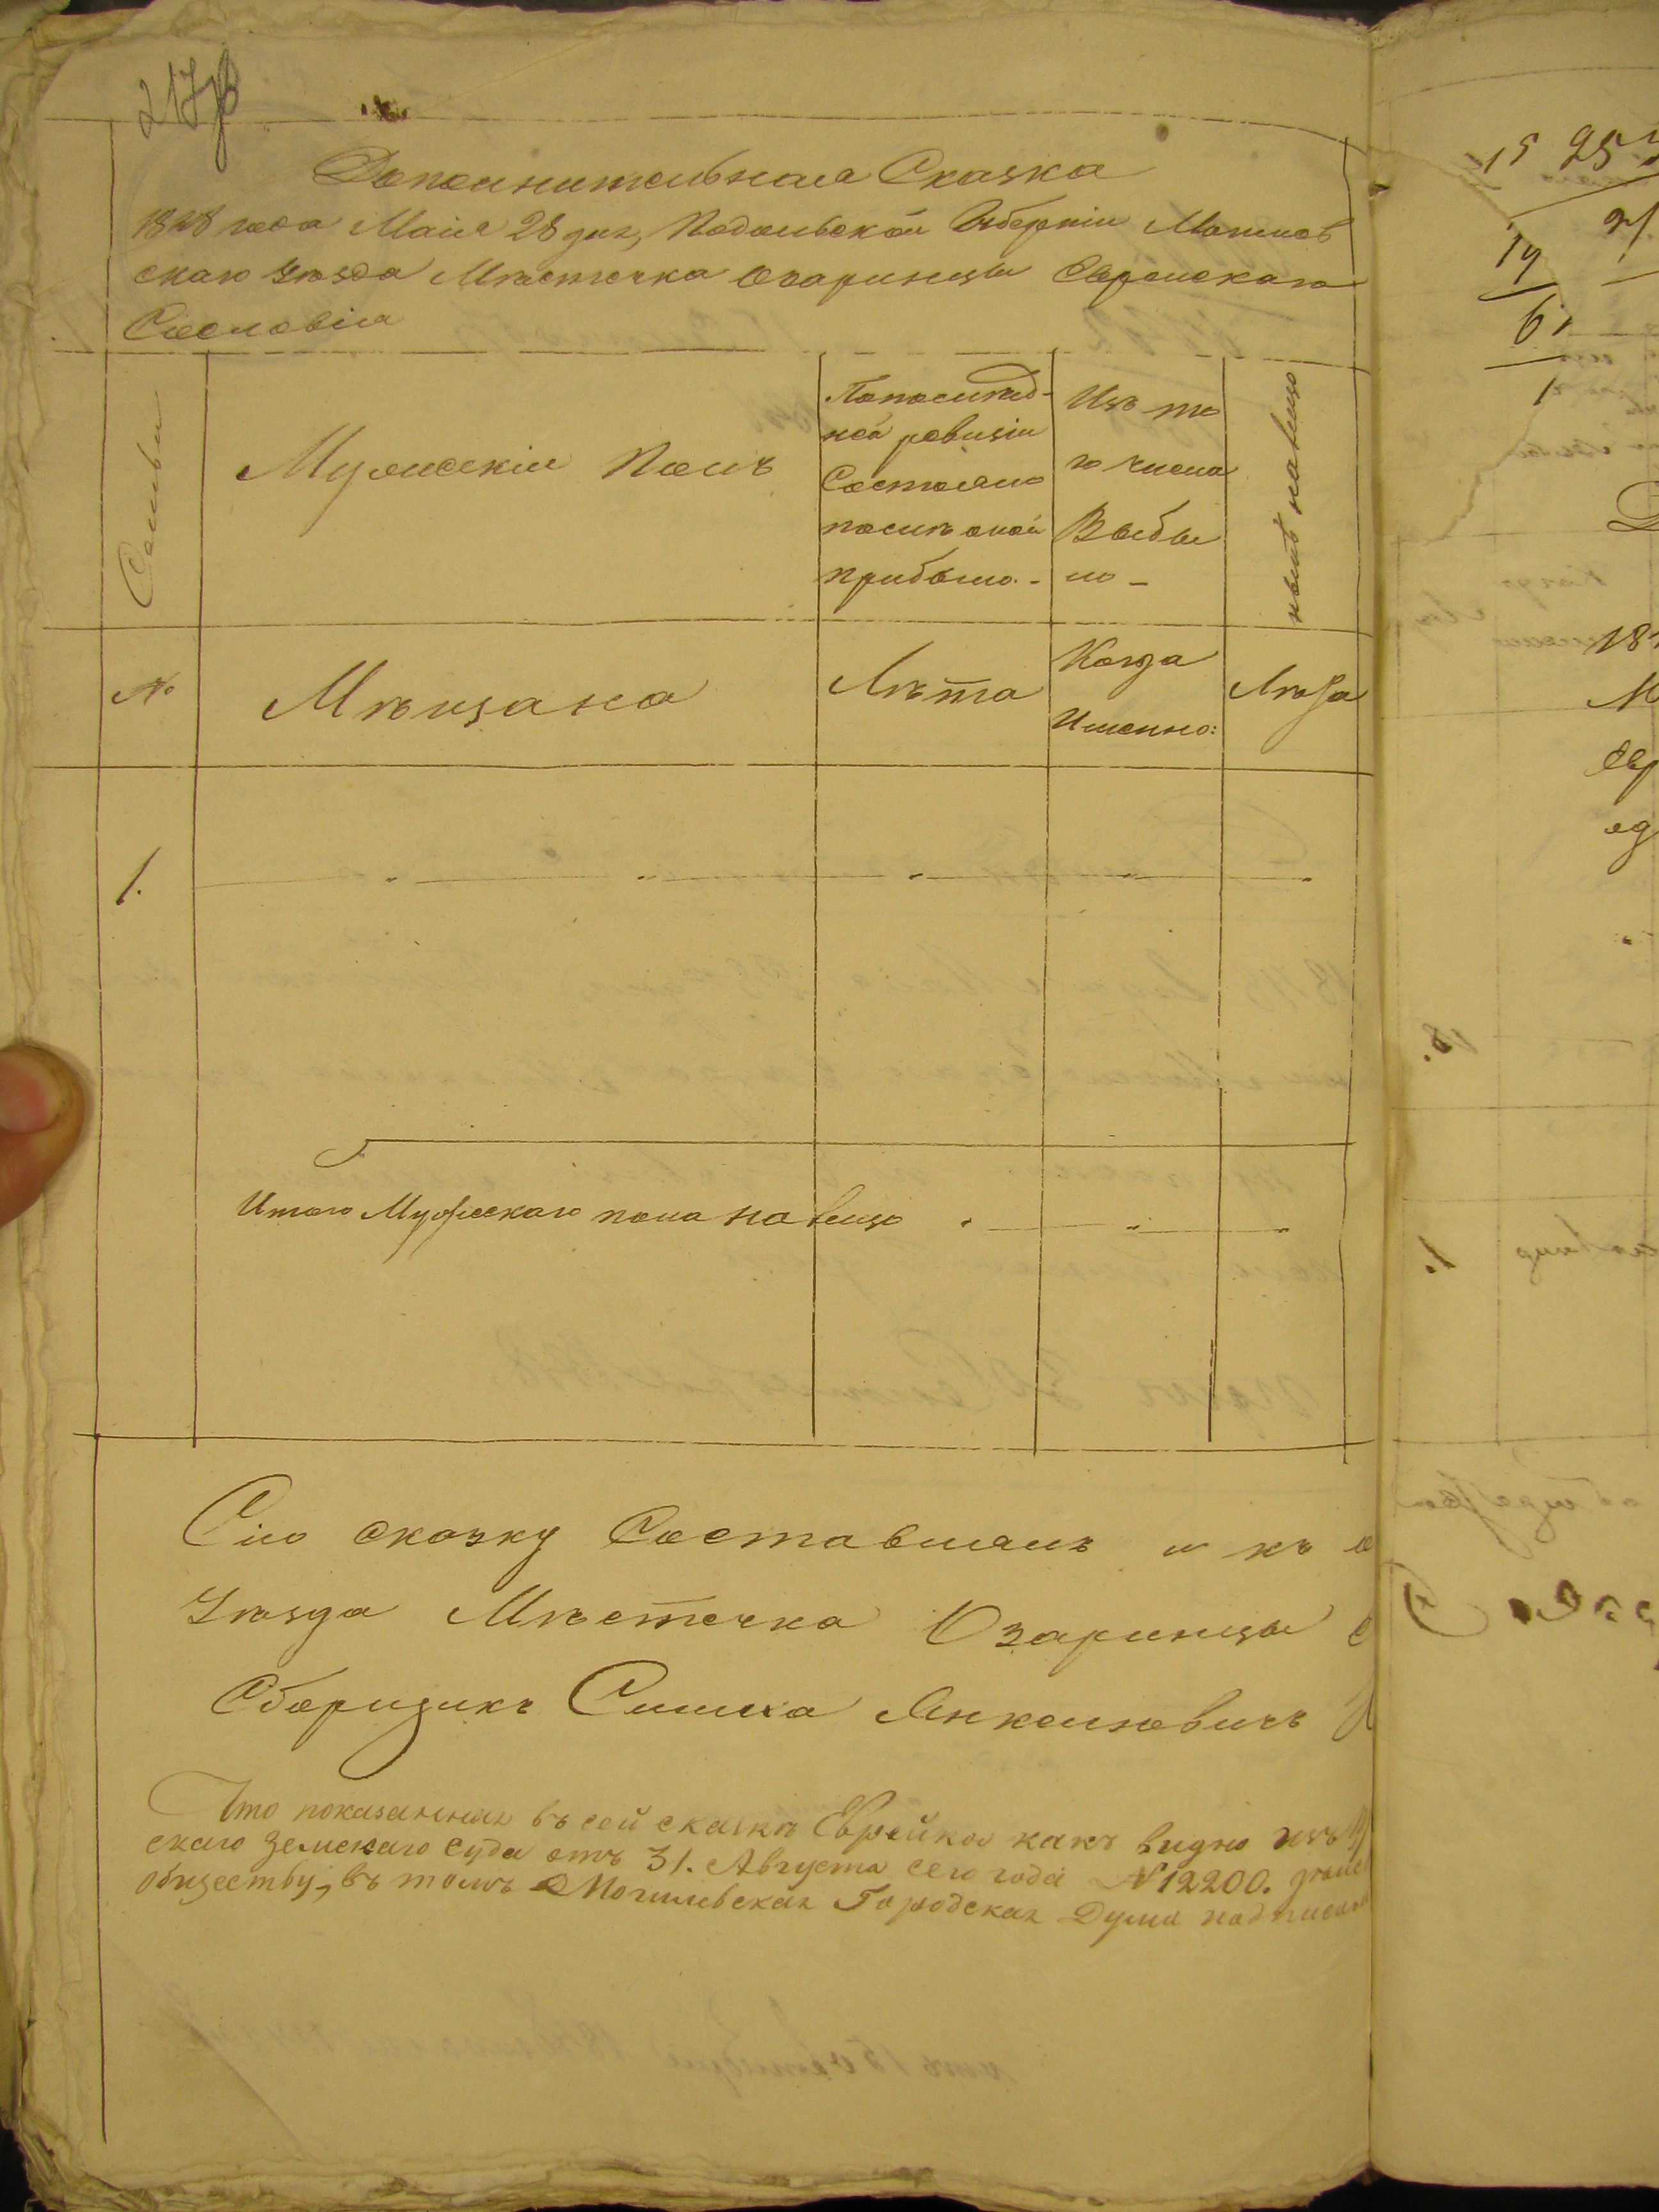 217
Дополнительная Сказка
1848 года Маія 28 дня, Подольской Губерніи Могилев
скаго Уѣзда Мѣстечка Озаринцы Еврейскаго
Сословія
Семьи
Мужескій Полъ
По послѣд-
ней ревизіи
Состояло
послѣ оной
прибыло. -
Изъ то
го числа
Выбы
ло -
нынѣ на лицо
№
Мѣщана
Лѣта
Когда
Именно:
Лѣта
1.
Итого Мужескаго пола на лицо
Сію сказку Составлялъ и къ
Уѣзда Мѣстечка Озаринцы
Сборщикъ Симха Янкелювичъ
Что показанная въ сей сказкѣ Еврейка какъ видно изъ
скаго Земскаго Суда отъ 31. Августа сего года №12200.
обществу, въ томъ Могилевская Городская Дума
15 95
19
61
1
181
М
Евр